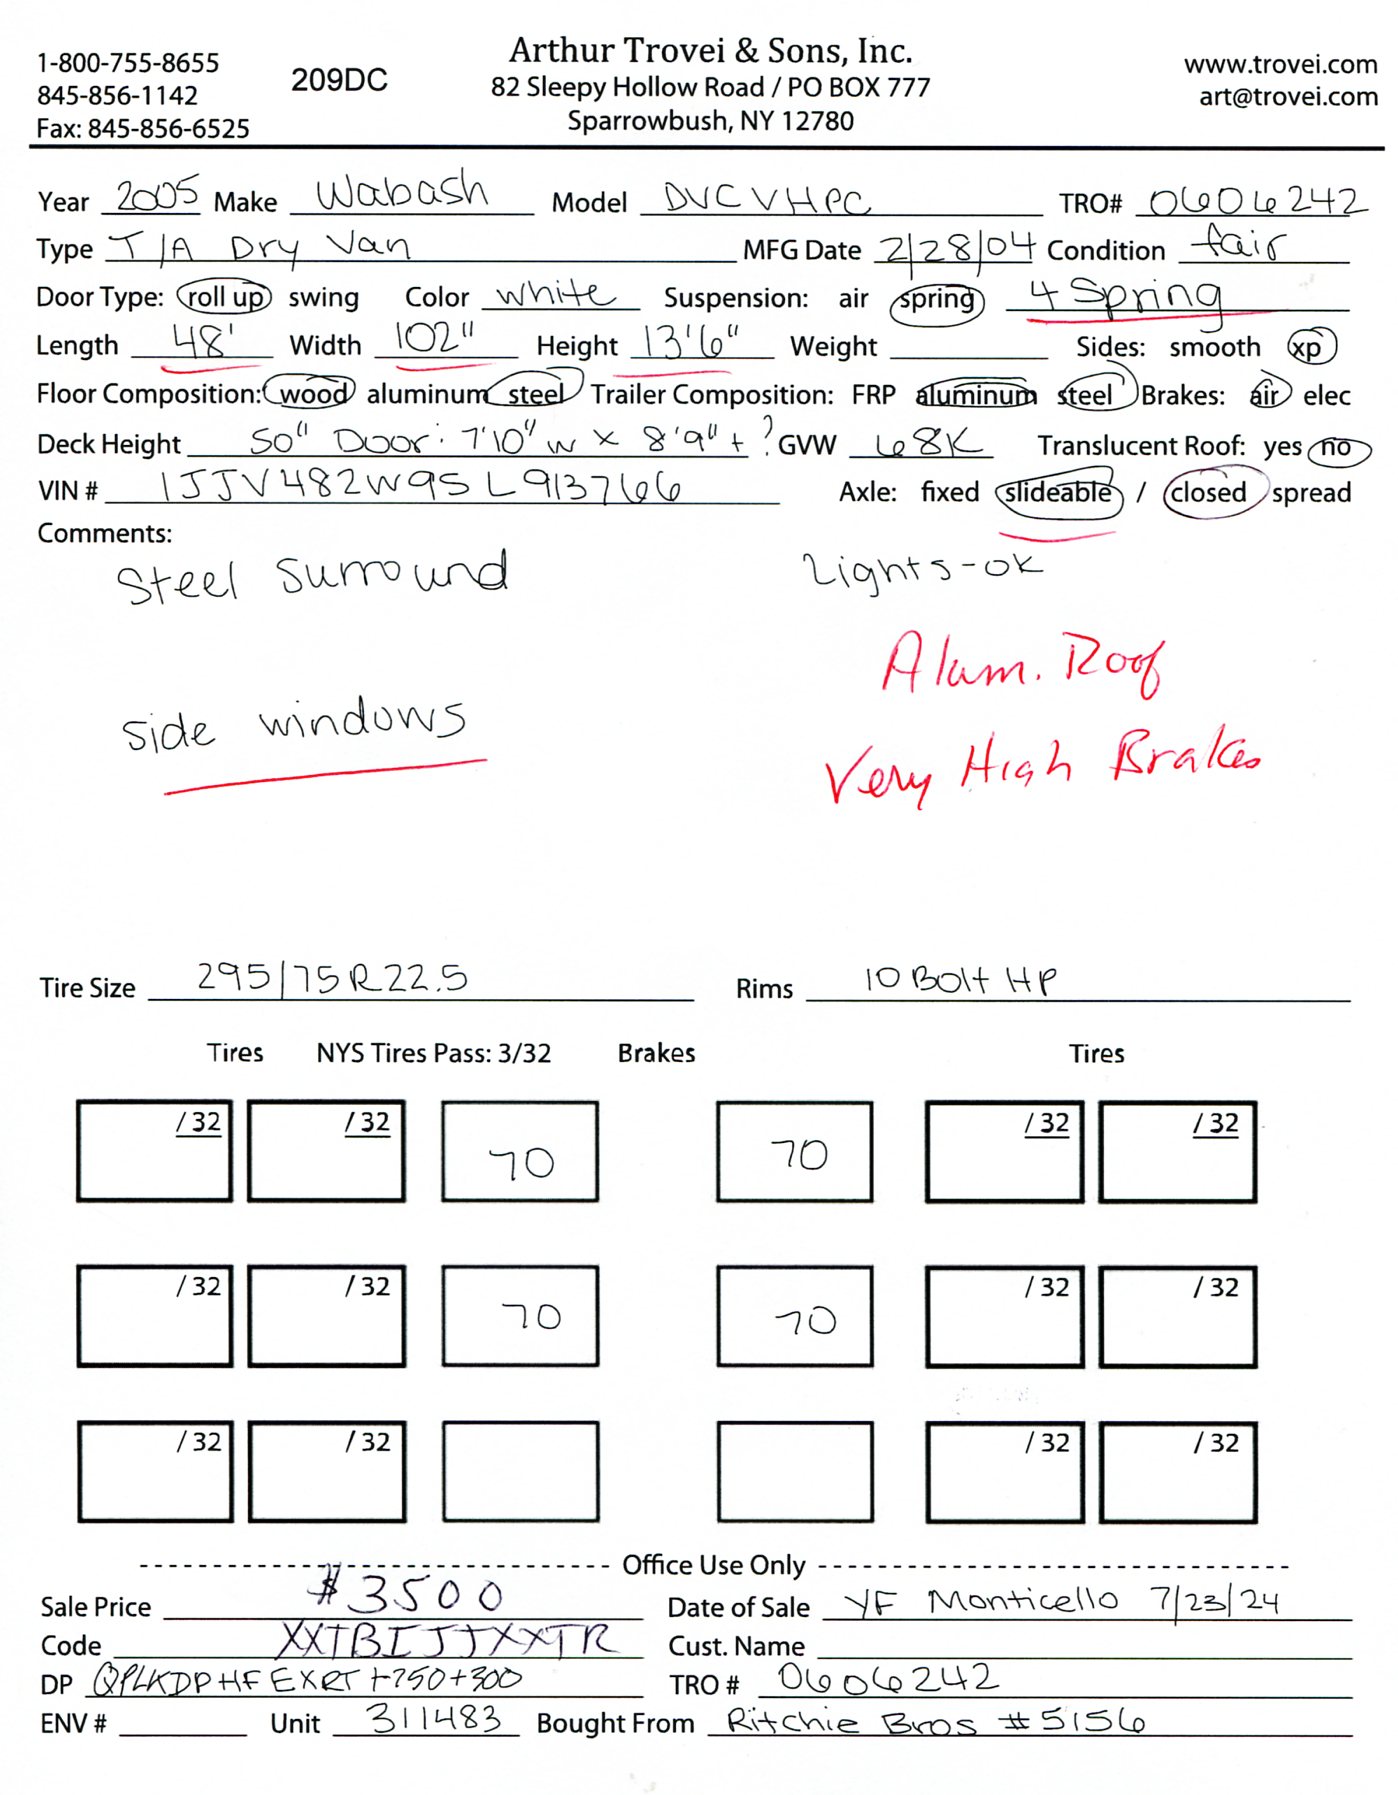 Arthur Trovei & Sons, Inc.
1-800-755-8655
845-856-1142
Fax: 845-856-6525
209DC
82 Sleepy Hollow Road / PO BOX 777
Sparrowbush, NY 12780
www.trovei.com
art@trovei.com
Year 2005 Make Wabash Model DVCVHPC TRO# 0606242
Type T/A Dry Van MFG Date 2/28/04 Condition fair
Door Type: roll up swing Color white Suspension: air spring 4 Spring
Length 48' Width 102" Height 13'6" Weight Sides: smooth xp
Floor Composition: wood aluminum steel Trailer Composition: FRP aluminum steel Brakes: air elec
Deck Height 50" Door: 7'10" w x 8'9" t ? GVW 68K Translucent Roof: yes no
VIN # 1JJV482W95L913766 Axle: fixed slideable / closed spread
Comments:
Steel Surround Lights-OK
Alum. Roof
side windows
Very High Brakes
Tire Size 295/75R22.5 Rims 10 Bolt HP
Tires NYS Tires Pass: 3/32 Brakes Tires
/32 /32 70 70 /32 /32
/32 /32 70 70 /32 /32
/32 /32 /32 /32
Office Use Only
Sale Price $3500 Date of Sale YF Monticello 7/23/24
Code XXTBIJJXXTR Cust. Name
DP QPLKDPHFEXRT+750+300 TRO # 0606242
ENV # Unit 311483 Bought From Ritchie Bros #5156